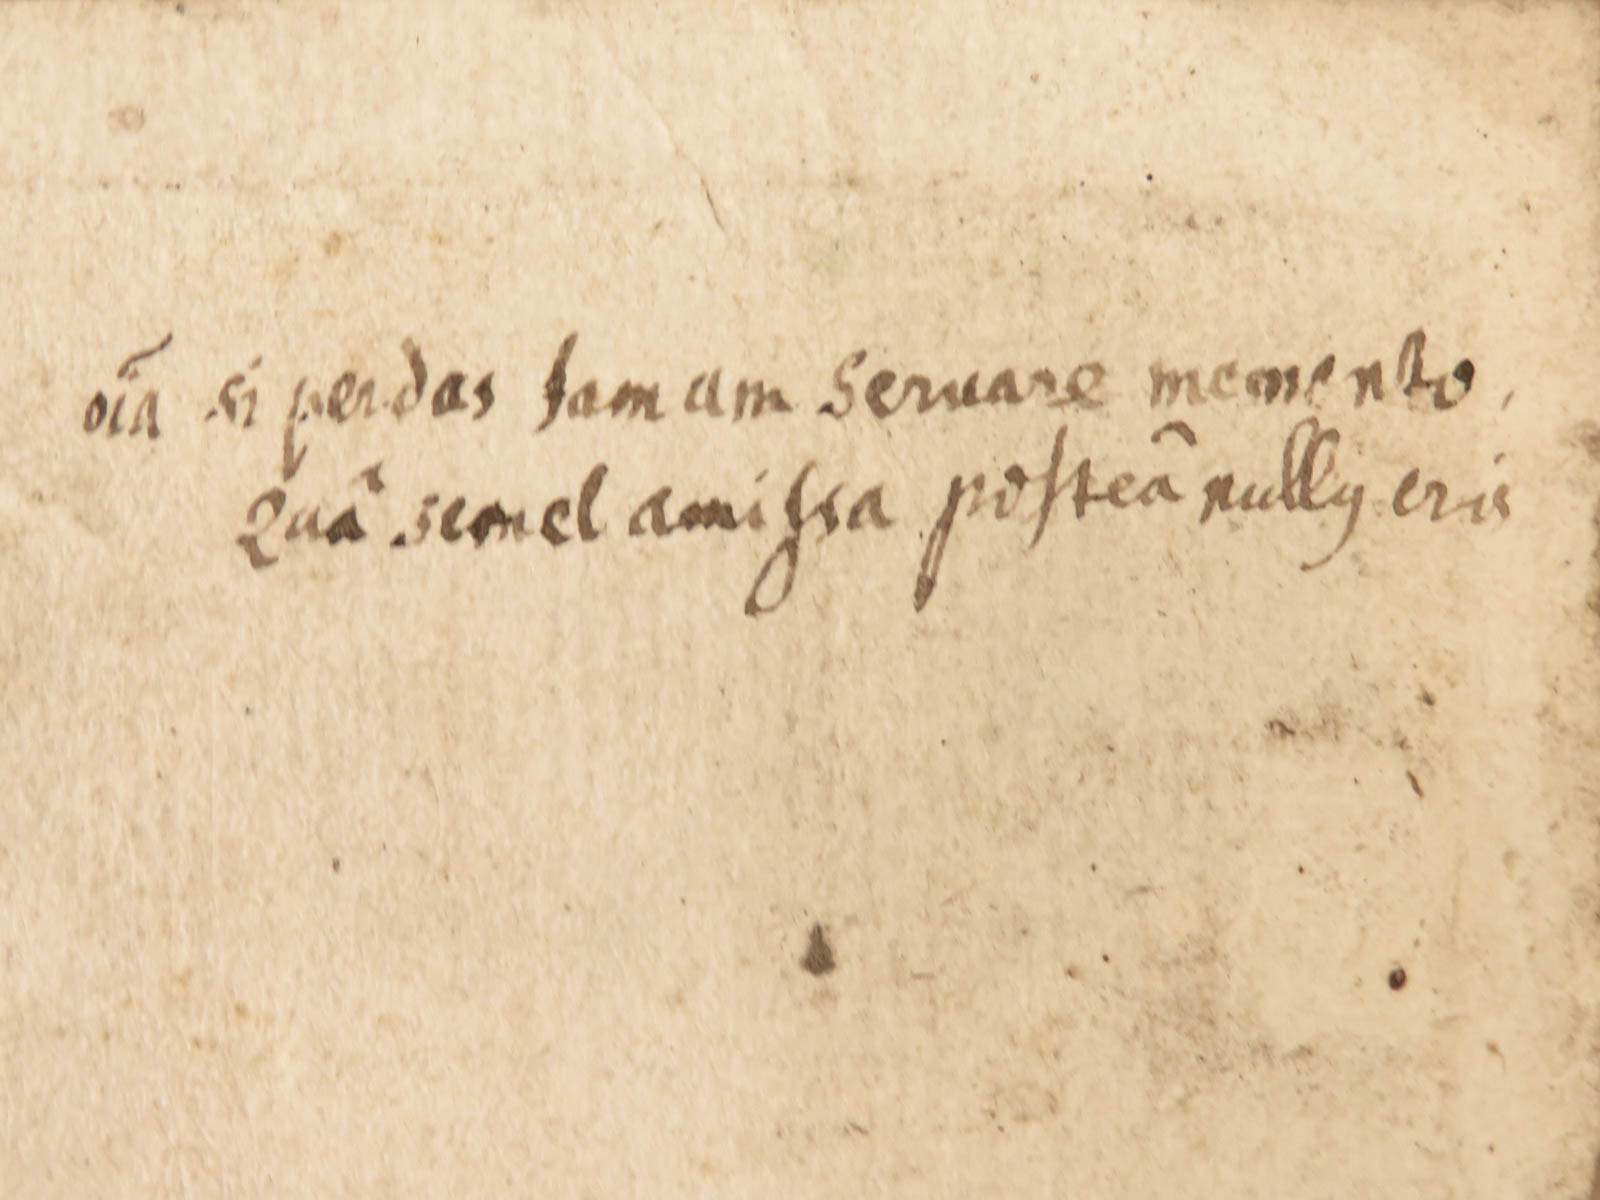 oĩa si perdas famam seruare memento,
Quâ semel amissa posteâ nullꝰ eris